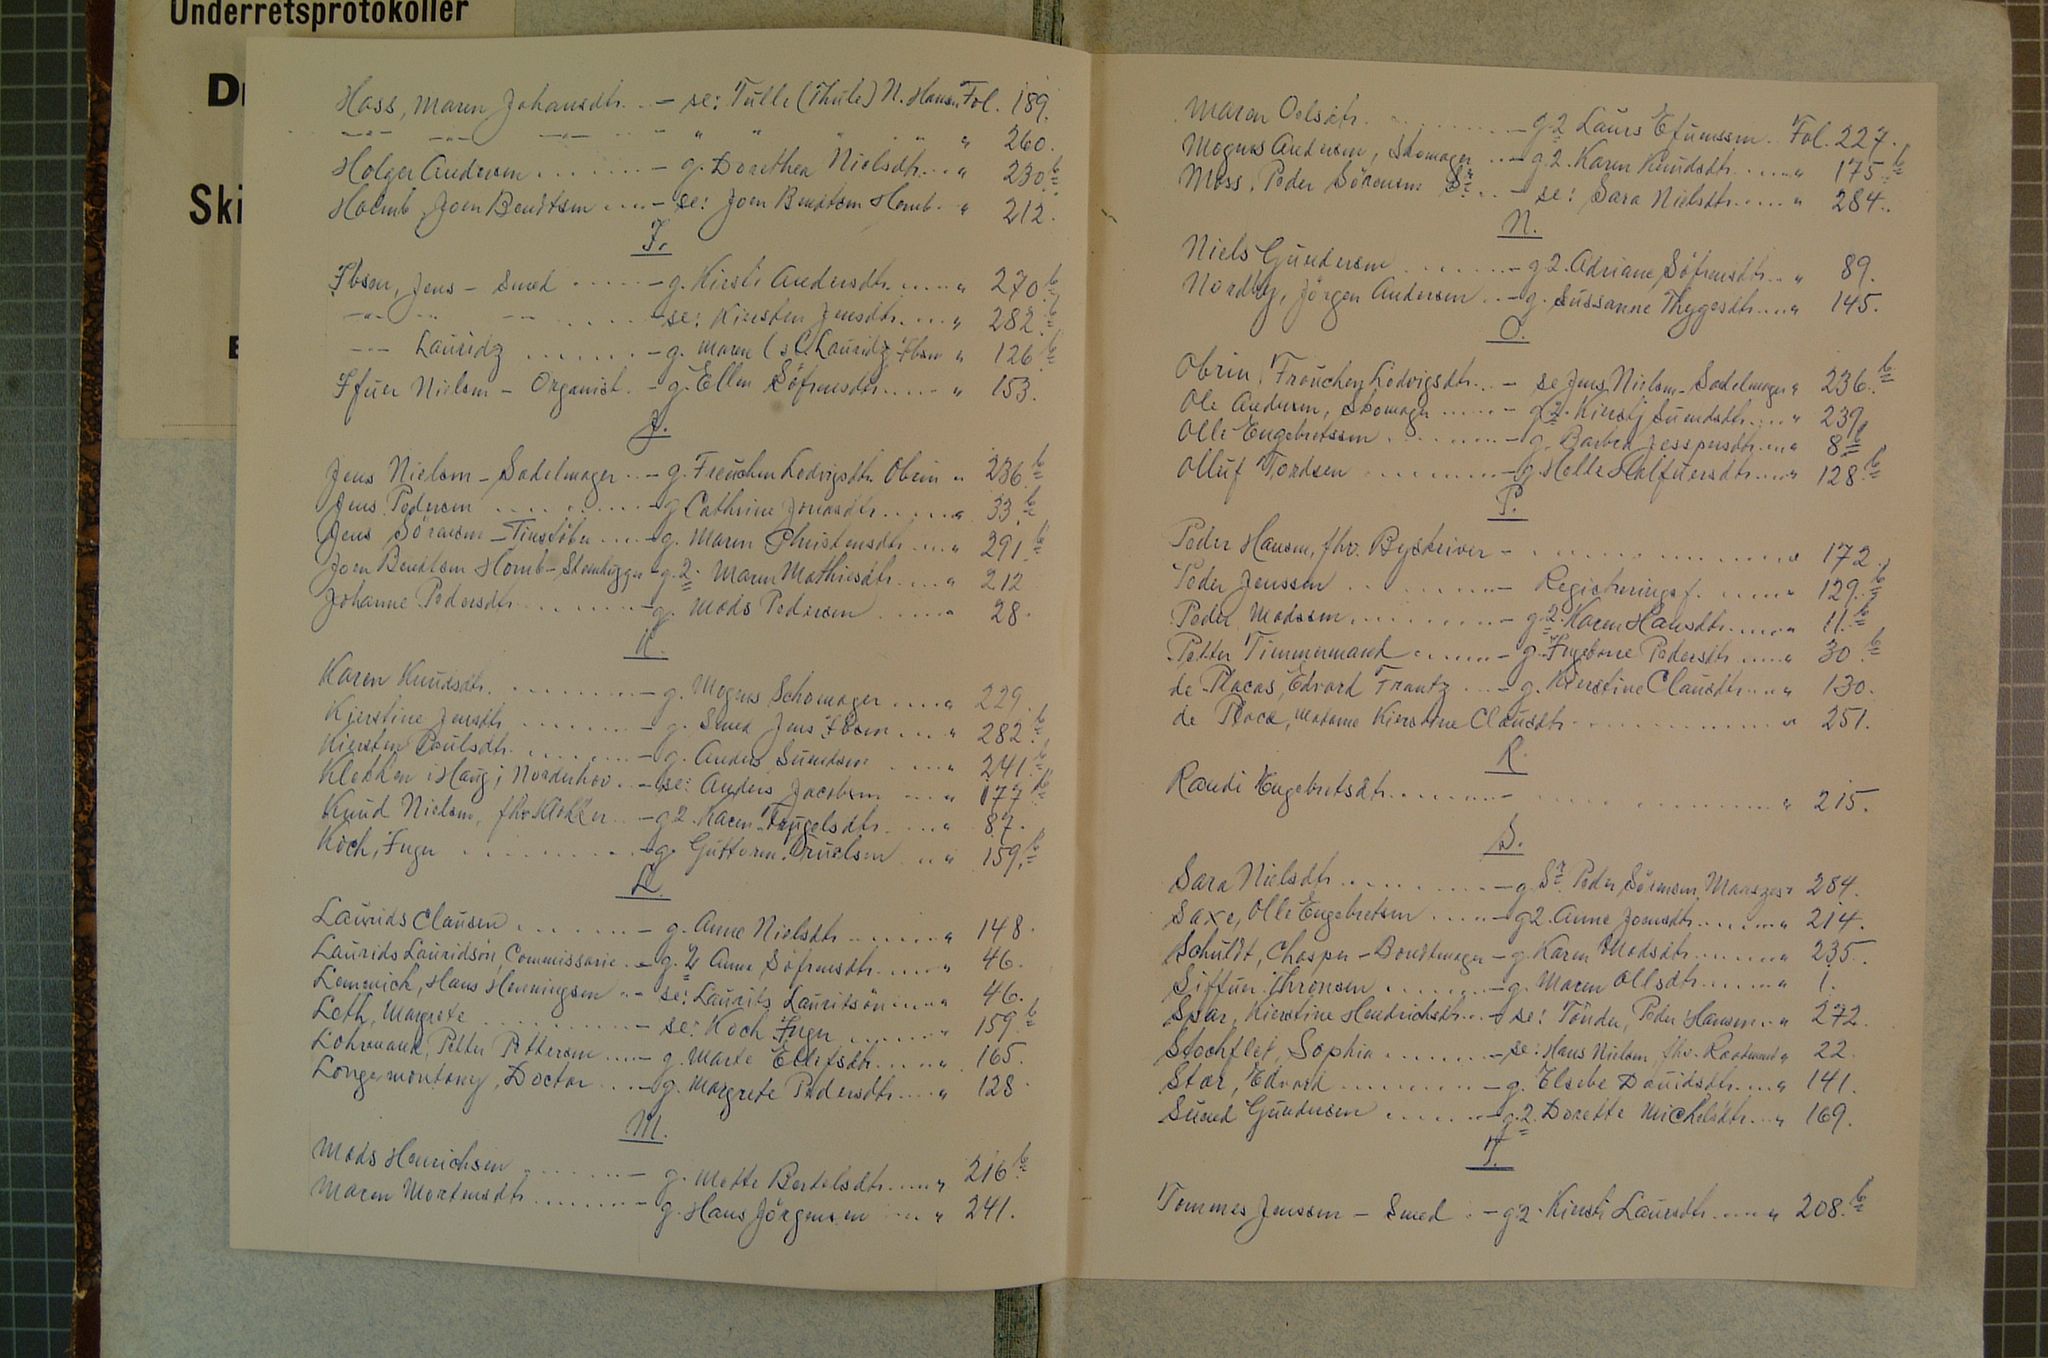 Underretsprotokoller
D
Ski
E
Hass, Maren Johansdtr. .. - se: Tulle (Thule) N. Hansen Fol. 189.
-"- -"- -"- " " " " " " 260.
Holger Andersen ....... - g. Dorethea Nielsdtr... " 230.b
Holmb, Joen Bendtsen .... - se: Joen Bendtsen Homb. " 212.
I.
Ibsen, Jens - Smed ..... - g. Kirsti Andersdtr. ..... " 270.b
-"- -"- -"- ..... - se: Kiersten Jensdtr. .... " 282.b
-"- Lauridz ....... - g. Maren (s.C. Lauridz Ibsen " 126.b
Ifuer Nielsen - Organist. - g. Ellen Söfrensdtr. ..... " 153.
J.
Jens Nielsen - Sadelmager .. - g. Freuchen Ledvigsdtr. Obrin " 236.b
Jens Pedersen .......... - g. Cathrine Jonasdtr. ...... " 33.b
Jens Sörensen - Tinstöber .... - g. Maren Christensdtr. .... " 291.b
Joen Bendtsen Homb - Stenhugger - g. 2. Maren Mathiesdtr. .... " 212
Johanne Pedersdtr. ....... - g. Mads Pedersen ..... " 28.
K.
Karen Knudsdtr. .......... - g. Mogens Schomager ..... " 229.
Kierstine Jensdtr. ........ - g. Smed Jens Ibsen .... " 282.b
Kiersten Poulsdtr. ........ - g. Anders Sundsen .... " 241.b
Klekken i Haug i Norderhov .. - se: Anders Jacobsen ... " 177.b
Knud Nielsen, fhv. Klokker .. - g 2. Karen Trugelsdtr. .... " 87.
Koch, Inger .......... - g. Guttorm Truelsen .. " 159.b
L.
Laurids Clausen ....... - g. Anne Nielsdtr. ........ " 148.
Laurids Lauridsön, Commissarie. - g. 2 Anne Söfrensdtr. ..... " 46.
Lemmich, Hans Henningsen .. - se: Laurits Lauritsön .... " 46.
Leth, Margrete .......... - se: Koch Inger ....... " 159.b
Lohrmann, Petter Pettersen .... - g. Marte Ellefsdtr. .... " 165.
Longemontany, Doctor .... - g. Margrete Pedersdtr. .... " 128.
M.
Mads Henrichsen ........ - g. Mette Bertelsdtr. .... " 216.b
Maren Mortensdtr. ....... - g. Hans Jörgensen ... " 241.
Maren Oelsdtr. .......... - g. 2 Laurs Efuenssen .. Fol. 227.
Mogens Andersen, Skomager ... - g. 2. Karen Knudsdtr. ..... " 175.b
Moss, Peder Sörensen Sr. .. - se: Sara Nielsdtr. .... " 284.
N.
Niels Gundersen ....... - g 2. Adriane Söfrensdtr. .. " 89.
Nordby, Jörgen Andersen .. - g. Sussanne Thygesdtr. ... " 145.
O.
Obrin, Freuchen Ledvigsdtr. .. - se Jens Nielsen - Sadelmager " 236.b
Ole Andersen, Skomager ..... - g. 2. Kiersti Sundsdtr. ... " 239.
Olle Engebretssen ........ - g. Barbra Jesspersdtr. ... " 8.b
Olluf Tordsen .......... - g. Helle Halfuersdtr. .... " 128.b
P.
Peder Hansen, fhv. Byskriver - ............... " 172.
Peder Jenssen ........ - Registreringsf. ..... " 129.b
Peder Madssen ......... - g. 2. Karen Hansdtr. .... " 11.b
Petter Timmermand ...... - g. Ingeborre Pedersdtr. .... " 30.b
de Placas, Edvard Frantz .... - g. Kierstine Clausdtr. ... " 130.
de Place, Madame Kierstine Clausdtr. ............. " 251.
R.
Randi Engebretsdtr. ....... - ............... " 215.
S.
Sara Nielsdtr. .......... - g. Sr. Peder Sörensen Manszes " 284.
Saxe, Olle Engebretsen ..... - g 2. Anne Joensdtr. ...... " 214.
Schuldt, Chasper - Bundtmager - g. Karen Madsdtr. ....... " 235.
Siffuer Thronsen ........ - g. Maren Ollsdtr. ...... " 1.
Spar, Kierstine Hendrichsdtr. .. - se: Tönder, Peder Hansen .. " 272.
Stochflet, Sophia ....... - se: Hans Nielsen, fhv. Raadmand " 22.
Stør, Edvard .......... - g. Elsebe Dauidsdtr. ... " 141.
Suend Gundersen ....... - g. 2. Dorette Michelsdtr. ... " 169.
T.
Tommes Jenssen - Smed .. - g 2. Kirsti Laursdtr. .... " 208.b